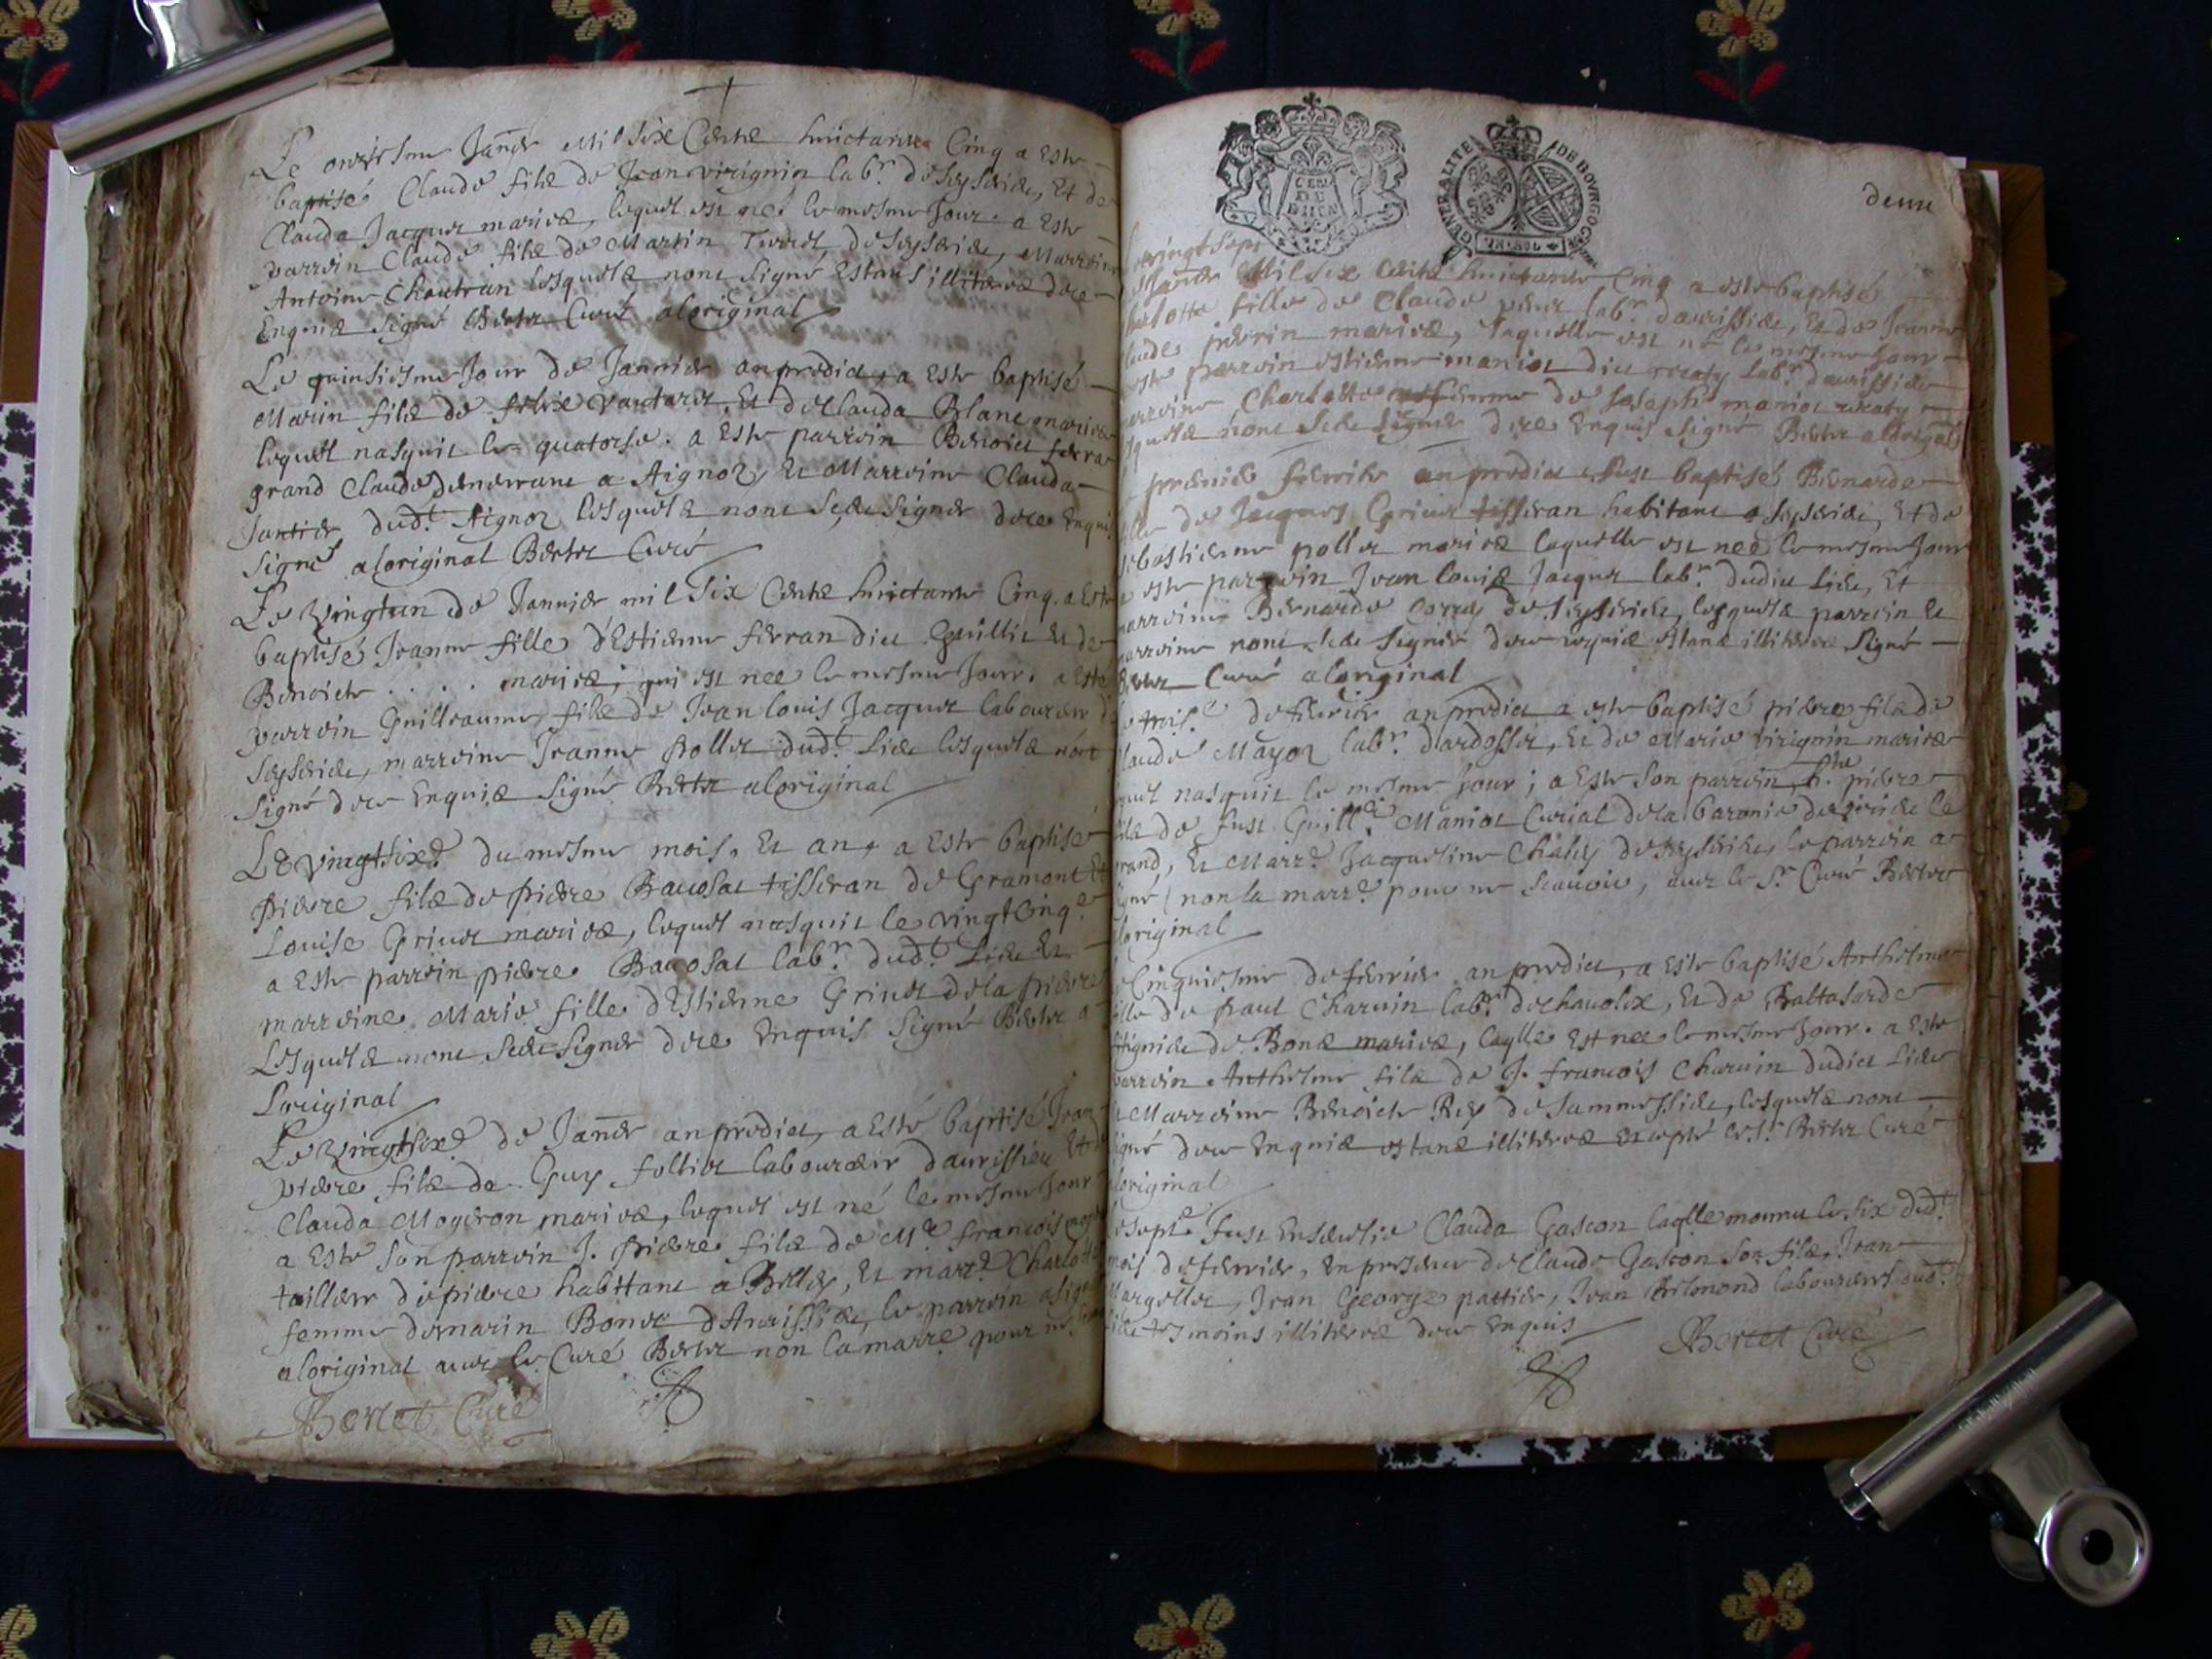 Le onziesme Janer Mil Six Cents huictante Cinq a este
baptisé Claude filz de Jean virignin labr. de Seyserieu, Et de
Clauda Jacquet mariez, lequel est né le mesme Jour. a este
parrein Claude filz de Martin de Seyserieu, Marreine
Antoine Chautran lesquelz nont Signé Estans illiterez de ce
Enquis Signé Bertet Curé aloriginal
Le quinsiesme Jour de Janvier an predict, a Este baptisé
Marin filz de felix vautaret, Et de Clauda Blanc mariez
lequel nasquit le quatorse. a Este parrein Benoict ferra
grand Claude demeurant a Aignoz, Et Marreine Clauda
Jantier dudt. Aignoz lesquelz nont Sceu Signer de ce Enquis
Signé aloriginal Bertet Curé
Le vingtun de Janvier mil Six Cents huictante Cinq. a Esté
baptisé Jeanne fille d'Estienne ferran dict Guillit Et de
Benoicte . . . . . mariez, qui est nee le mesme Jour. a Esté
parrein Guilleaume, filz de Jean louis Jacquet laboureur de
Seyserieu, marreine Jeanne pollet dudt. Lieu lesquelz nont
Signé de ce Enquis Signé Bertet aloriginal
Le vingtsixe. du mesme mois, Et an, a Este baptisé
pierre filz de pierre Bavosat tisseran de Gramont Et
Louise Grinet mariez, lequel nasquit le vingtCinqe.
a Este parrein pierre Bavosat labr. dudt. Lieu Et
marreine Marie fille d'Estienne Grinet dela pierre
Lesquelz nont Sceu Signer de ce Enquis Signé Bertet a
Loriginal
Le vingtsixe. de Janer an predict, a Esté baptisé Jean
pierre filz de Guy follier laboureur daurissieu Et de
Clauda Mogeron mariez, lequel est né le mesme Jour
a Este Son parrein J. pierre filz de Me francois
tailleur de pierre habitant a Belley, Et marre. Charlotte
femme de marin Bonet d'Aurissieu, le parrein a signé
aloriginal avec le Curé Bertet non la marre. pour ne
Bertet Curé
GENERALITE DE BOURGOGNE
deux
vingt sept
Janer Mil six Cents huictante Cinq a este baptisé
fille de Claude labr. daurissieu, Et de Jeanne
perrin mariez, laquelle est né le mesme Jour
este parrein estienne maniot dict labr. daurissieu
Charlotte femme de Joseph maniot
nont Sceu Signer de ce Enquis Signé Bertet aloriginal
premier fevrier an predict fust baptisé Bernarde
de Jacques Grinet tisseran habitant a Seyserieu, Et de
Sebastienne pollet mariez laquelle est nee le mesme Jour
a este parrein Jean louis Jacquet labr. dudict Lieu, Et
marreine Bernarde de Seyserieu, lesquelz parrein Et
marreine nont Sceu Signer de ce enquis estans illiterez Signé
Bertet Curé aloriginal
Le troise de fevrier an predict a este baptisé pierre filz de
Claude Mayoz labr. dardosset, Et de Marie virignin mariez
lequel nasquit le mesme Jour ; a Este Son parrein pierre
filz de fust Maniot Curial dela baronie de le
grand, Et Marre. Jacqueline de Seyserieu, le parrein a
signé (non la marre. pour ne scavoir, avec le Sr Curé Bertet
aloriginal
Cinquiesme de fevrier an predict, a Este baptisé Anthelme
fille de paul Charvin labr. de chavolex, Et de Baltasarde
de Bons mariez, laqlle Est nee le mesme Jour. a Este
parrein Anthelme filz de J. francois Charvin dudict Lieu
Et Marreine Benoicte Rey de Sammessieu, lesquelz nont
signé de ce Enquis estans illiterez Excepté le Sr. Bertet Curé
aloriginal
septe fust Ensevelie Clauda Gascon laqlle mourut le six dudt.
mois de fevrier, En presence de Claude Gascon Son filz, Jean
Margollet, Jean George pattier, Jean laboureurs dudt.
lieu tesmoins illiterez de ce Enquis
Bertet Curé